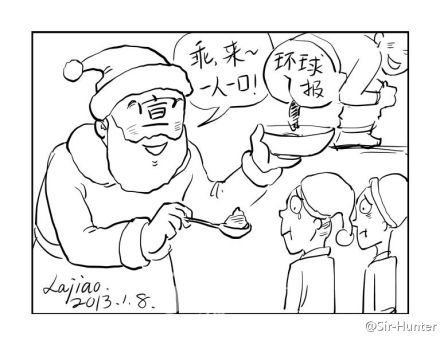 乖,来~
一人一口!
环球
报
宣
Lajiao.
2013.1.8.
@Sir-Hunter